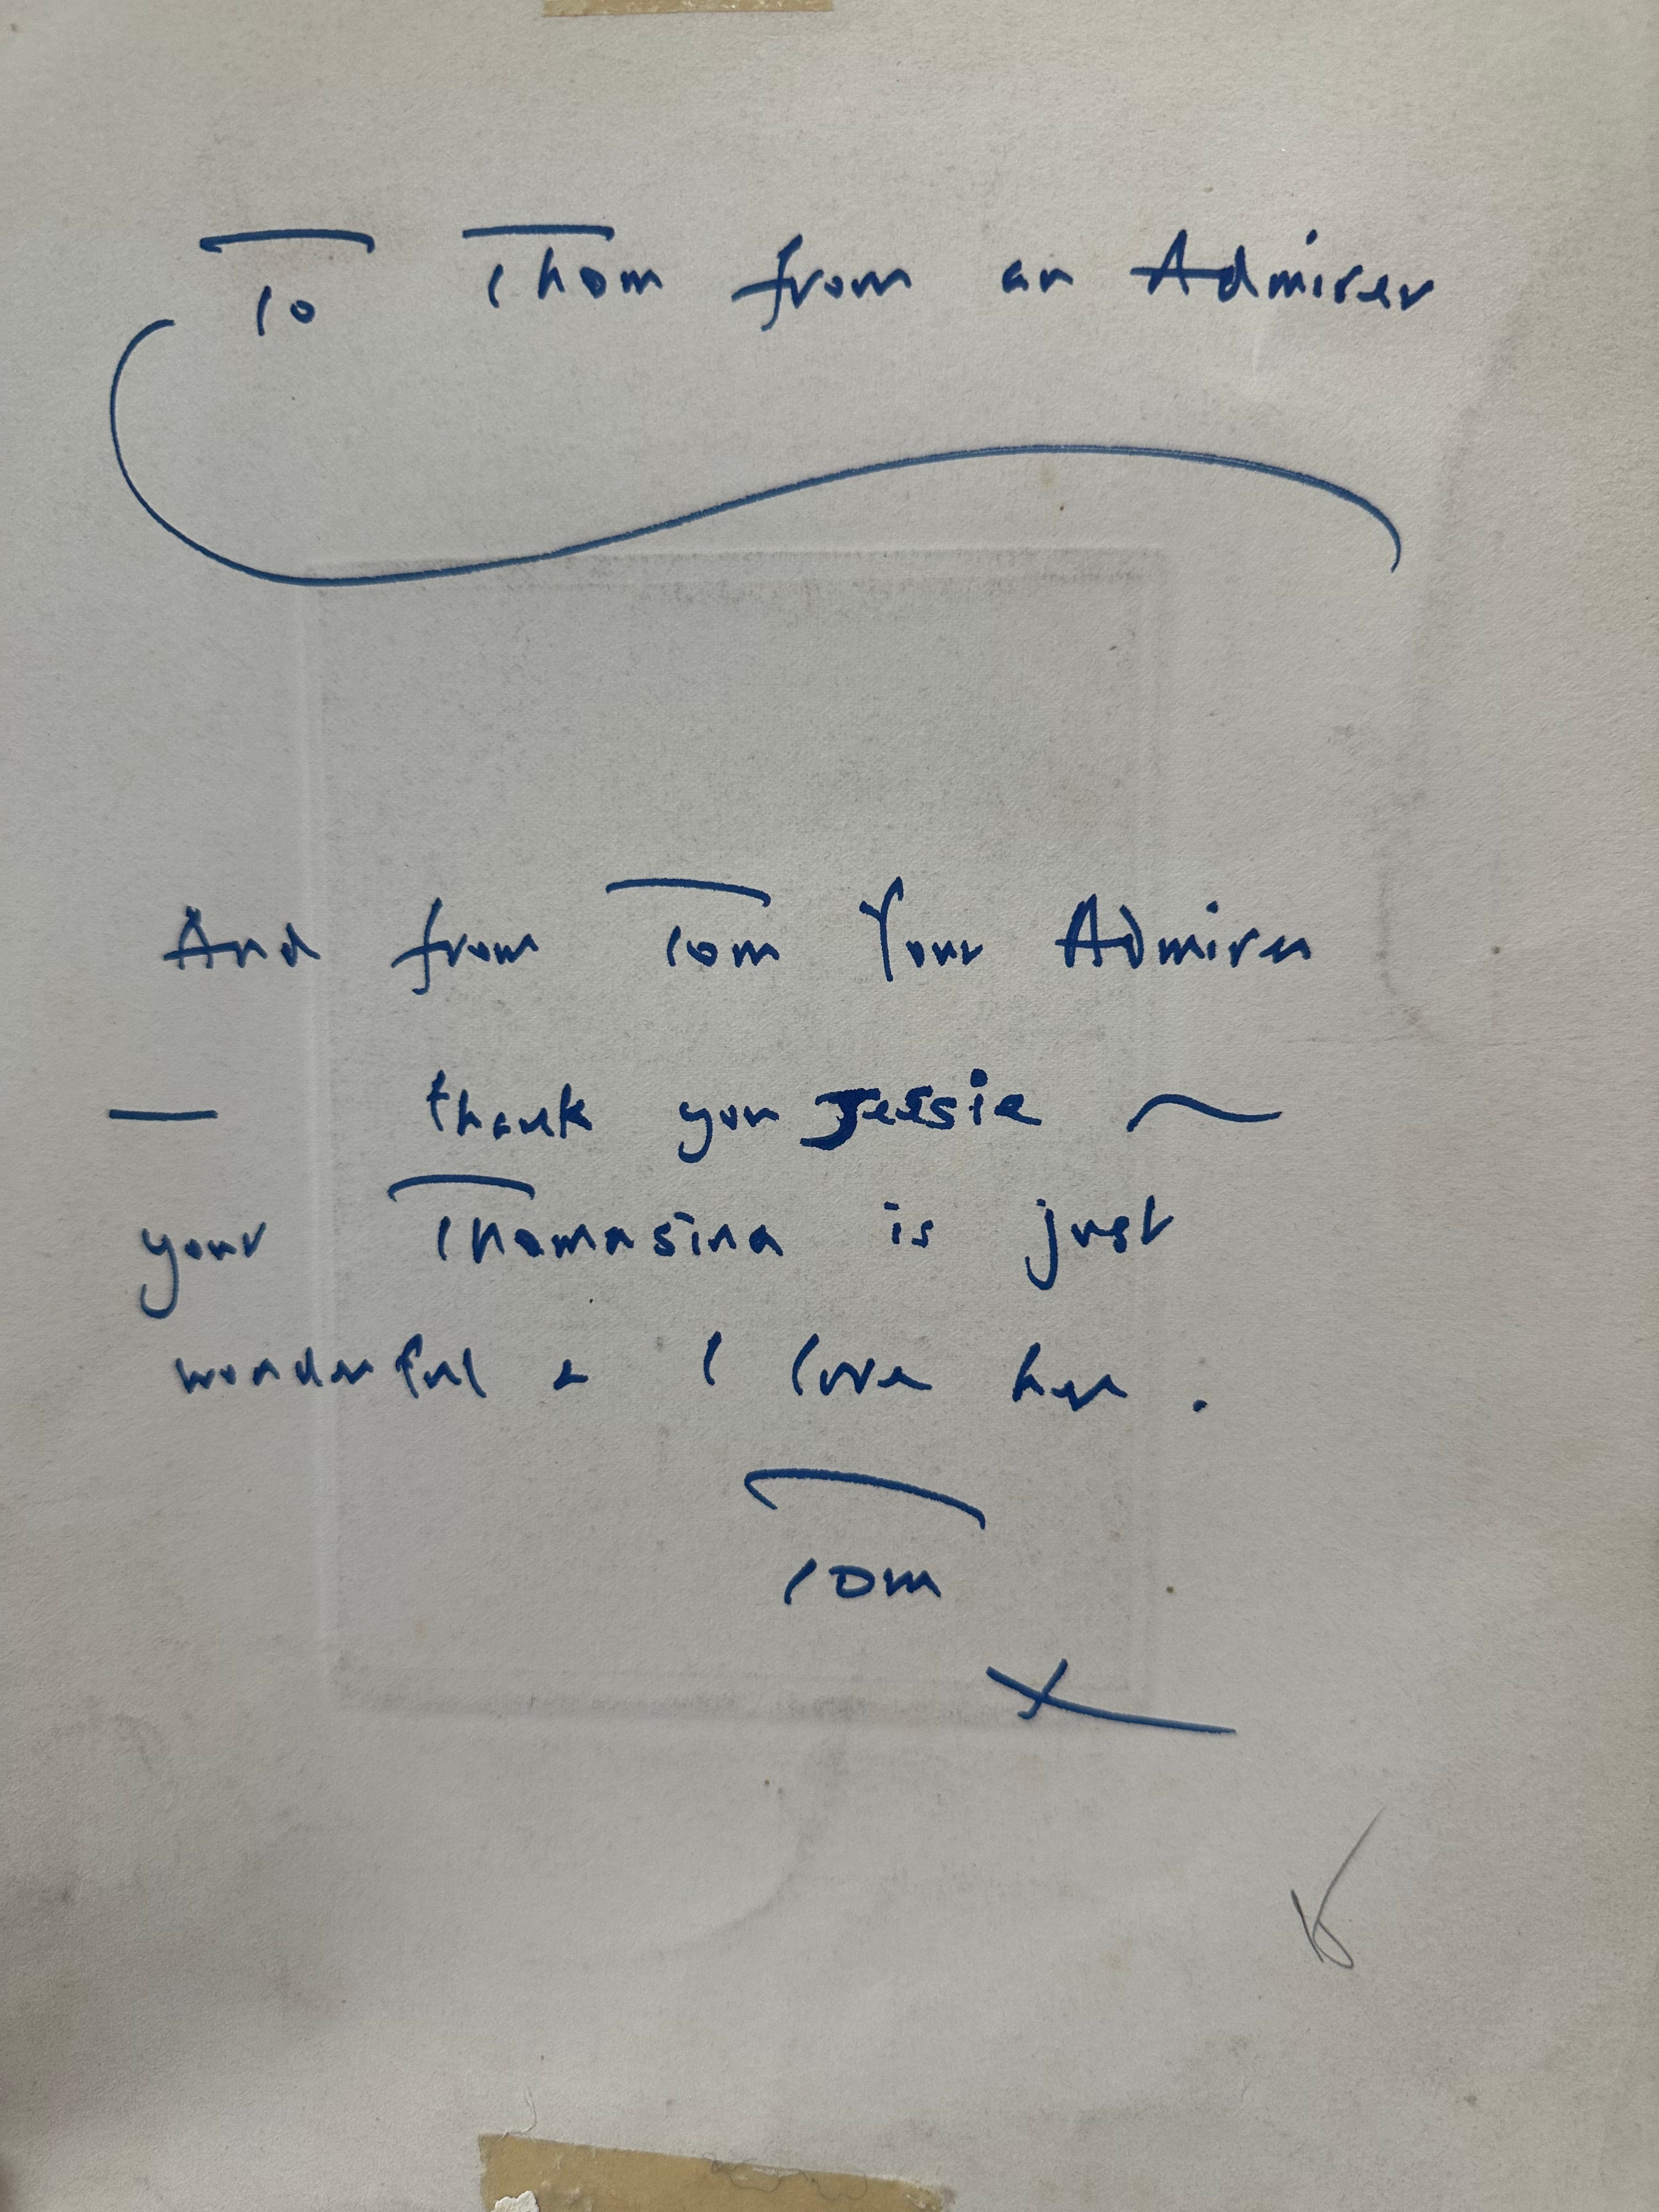 To Thom from an Admirer
And from Tom Your Admirer
— thank you Jessie ~
your Thomasina is just
wonderful & I love her.
Tom
X